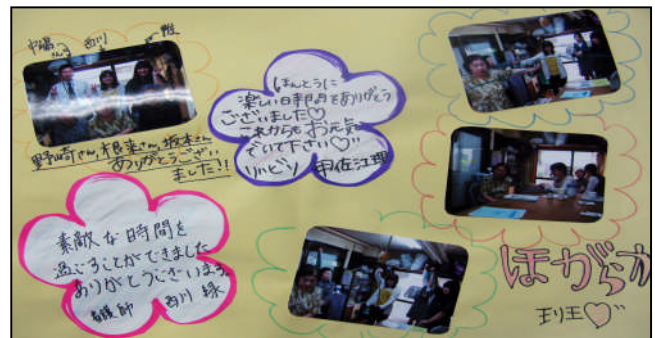 中嶋
西川
野崎さん、根来さん、坂本さん
ありがとうござい
ました!!
ほんとうに
楽しい時間をありがとう
ございました♡
これからもお元気
でいて下さい♡
リハビリ 宇佐江理
素敵な時間を
過ごすことができました
ありがとうございます。
看護師 西川 緑
ほがらか